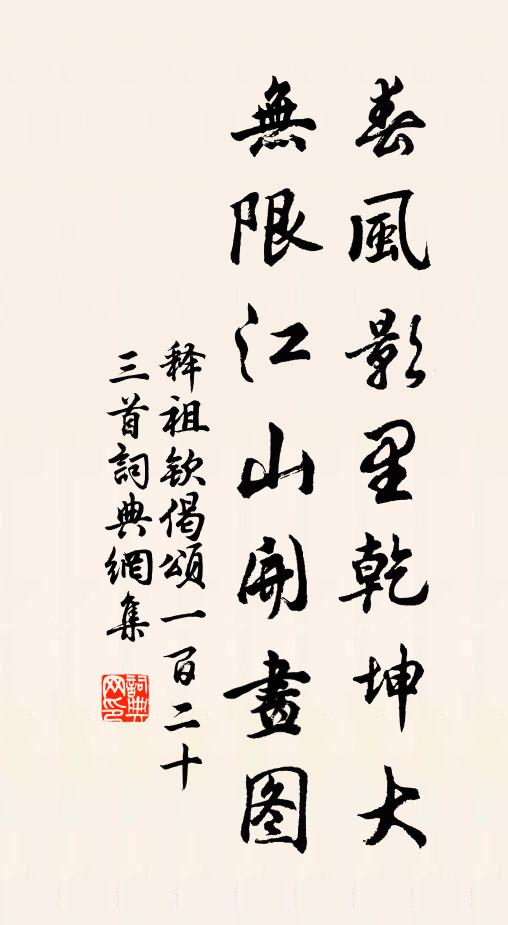 春風影里乾坤大
無限江山開畫图
释祖欽偈頌一百二十
三首詞典網集
詞典网印